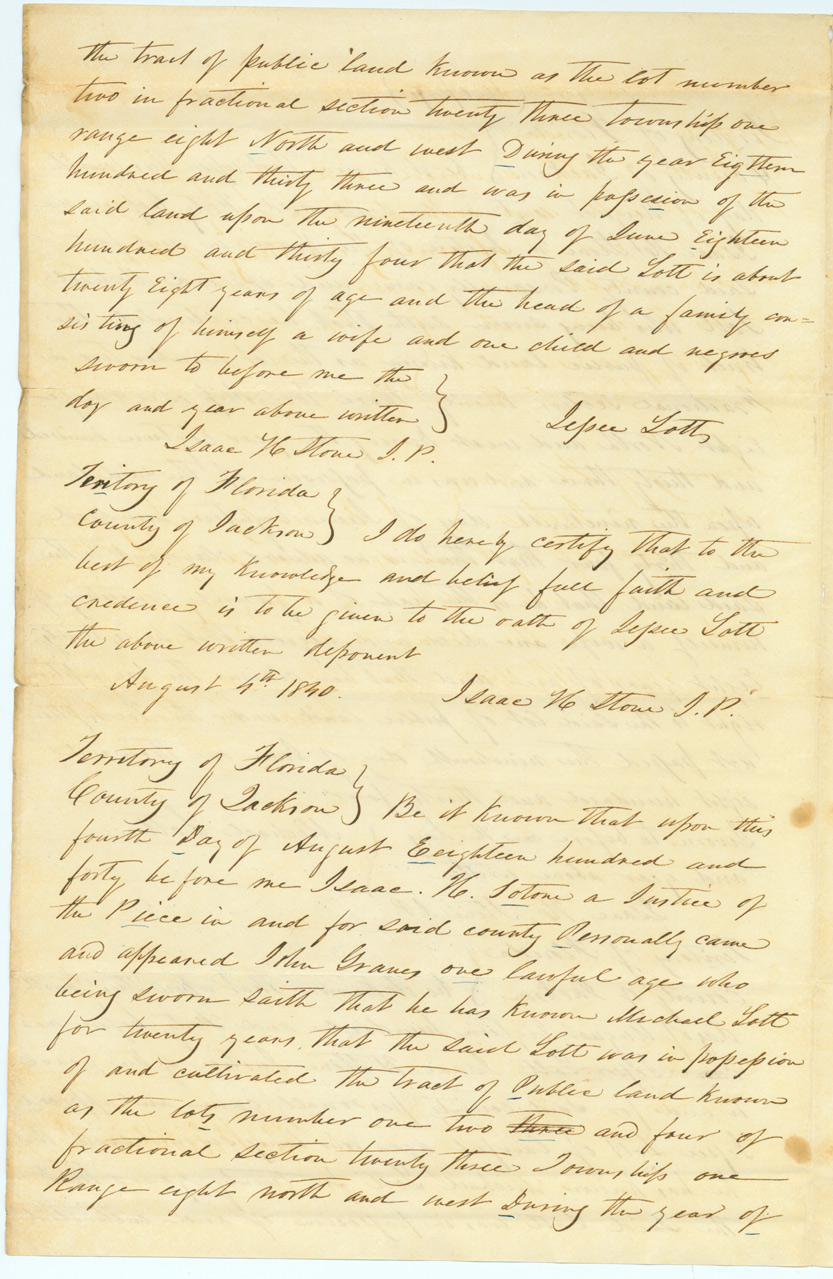 the tract of public land Known as the lot number
two in fractional section twenty three township one
range eight North and west During the year Eigttern
hundred and thirty three and was in possesion of the
said land upon the nineteenth day of June Eighteen
hundred and thirty four that the said Lott is about
twenty Eight years of age and the head of a family con=
sisting of himself a wife and one child and negroes
sworn to before me the
day and year above written
Jessee Lott
Isaac H Stone J. P.
Teritory of Florida
County of Jackson } I do hereby certify that to the
best of my Knowledge and belief full faith and
credence is to be given to the oath of Jessee Lott
the above written deponent
August 4th 1840.
Isaac H Stone J. P.
Territory of Florida
County of Jackson } Be it Known that upon this
fourth Day of August Eeighteen hundred and
forty before me Isaac. H. Sotone a Justice of
the Piece in and for said county Personally came
and appeared John Graves one lawful age who
being sworn saith that he has Known Michael Lott
for twenty years. that the said Lott was in possession
of and cultivated the tract of Public land Known
as the lots number one two three and four of
fractional section twenty three Township one
Range eight north and west During the year of